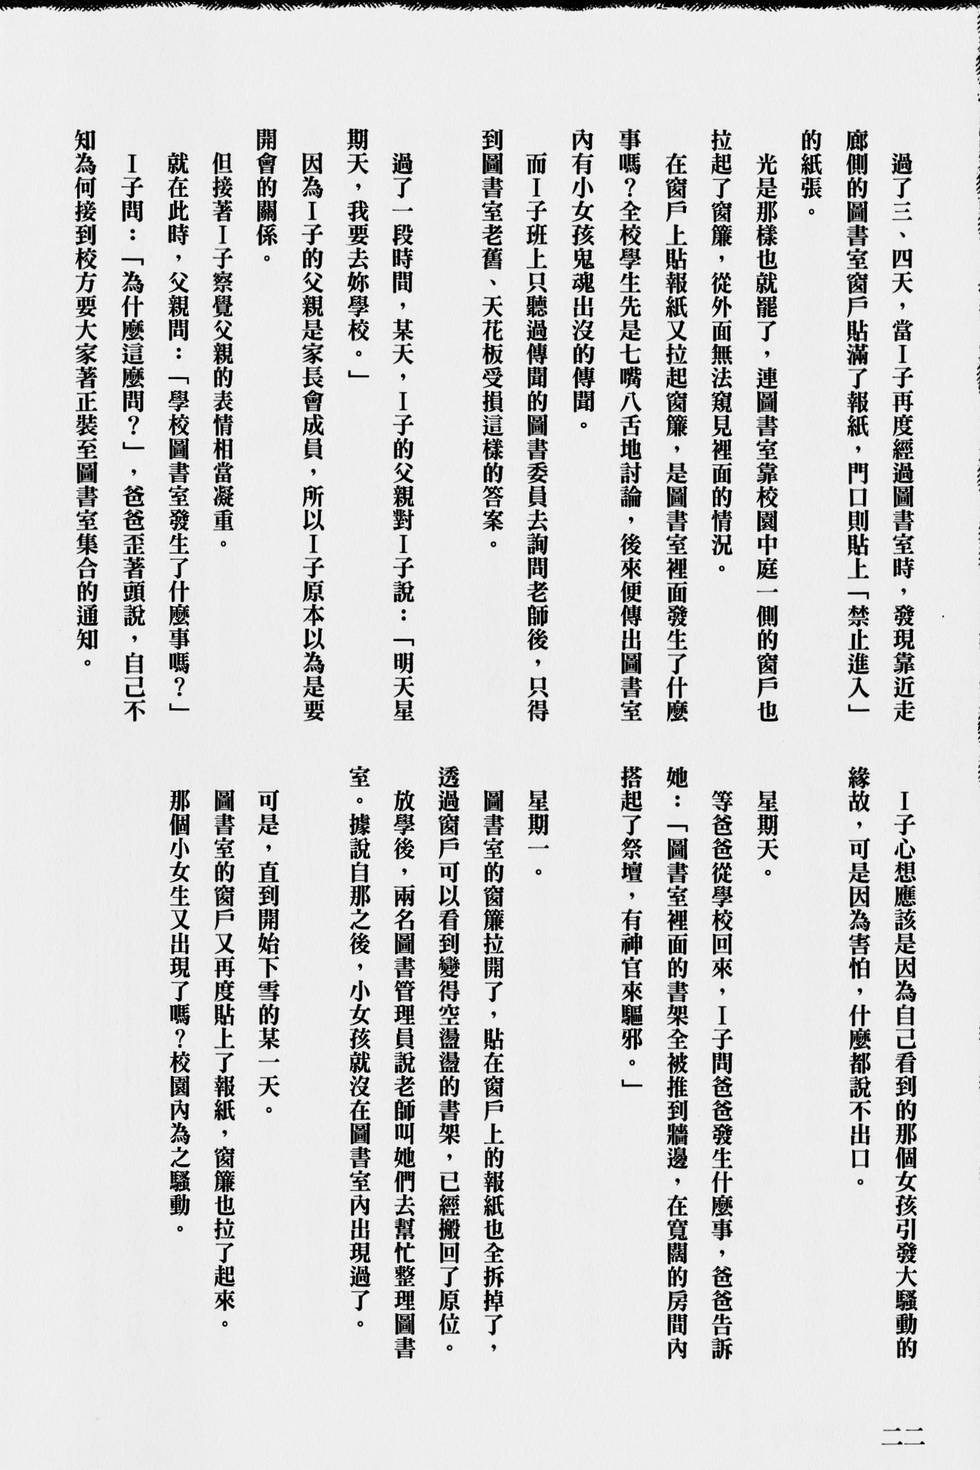 過了三、四天，當Ｉ子再度經過圖書室時，發現靠近走
廊側的圖書室窗戶貼滿了報紙，門口則貼上「禁止進入」
的紙張。
光是那樣也就罷了，連圖書室靠校園中庭一側的窗戶也
拉起了窗簾，從外面無法窺見裡面的情況。
在窗戶上貼報紙又拉起窗簾，是圖書室裡面發生了什麼
事嗎？全校學生先是七嘴八舌地討論，後來便傳出圖書室
內有小女孩鬼魂出沒的傳聞。
而Ｉ子班上只聽過傳聞的圖書委員去詢問老師後，只得
到圖書室老舊、天花板受損這樣的答案。
過了一段時間，某天，Ｉ子的父親對Ｉ子說：「明天星
期天，我要去妳學校。」
因為Ｉ子的父親是家長會成員，所以Ｉ子原本以為是要
開會的關係。
但接著Ｉ子察覺父親的表情相當凝重。
就在此時，父親問：「學校圖書室發生了什麼事嗎？」
Ｉ子問：「為什麼這麼問？」，爸爸歪著頭說，自己不
知為何接到校方要大家著正裝至圖書室集合的通知。
Ｉ子心想應該是因為自己看到的那個女孩引發大騷動的
緣故，可是因為害怕，什麼都說不出口。
星期天。
等爸爸從學校回來，Ｉ子問爸爸發生什麼事，爸爸告訴
她：「圖書室裡面的書架全被推到牆邊，在寬闊的房間內
搭起了祭壇，有神官來驅邪。」
星期一。
圖書室的窗簾拉開了，貼在窗戶上的報紙也全拆掉了，
透過窗戶可以看到變得空盪盪的書架，已經搬回了原位。
放學後，兩名圖書管理員說老師叫她們去幫忙整理圖書
室。據說自那之後，小女孩就沒在圖書室內出現過了。
可是，直到開始下雪的某一天。
圖書室的窗戶又再度貼上了報紙，窗簾也拉了起來。
那個小女生又出現了嗎？校園內為之騷動。
二二